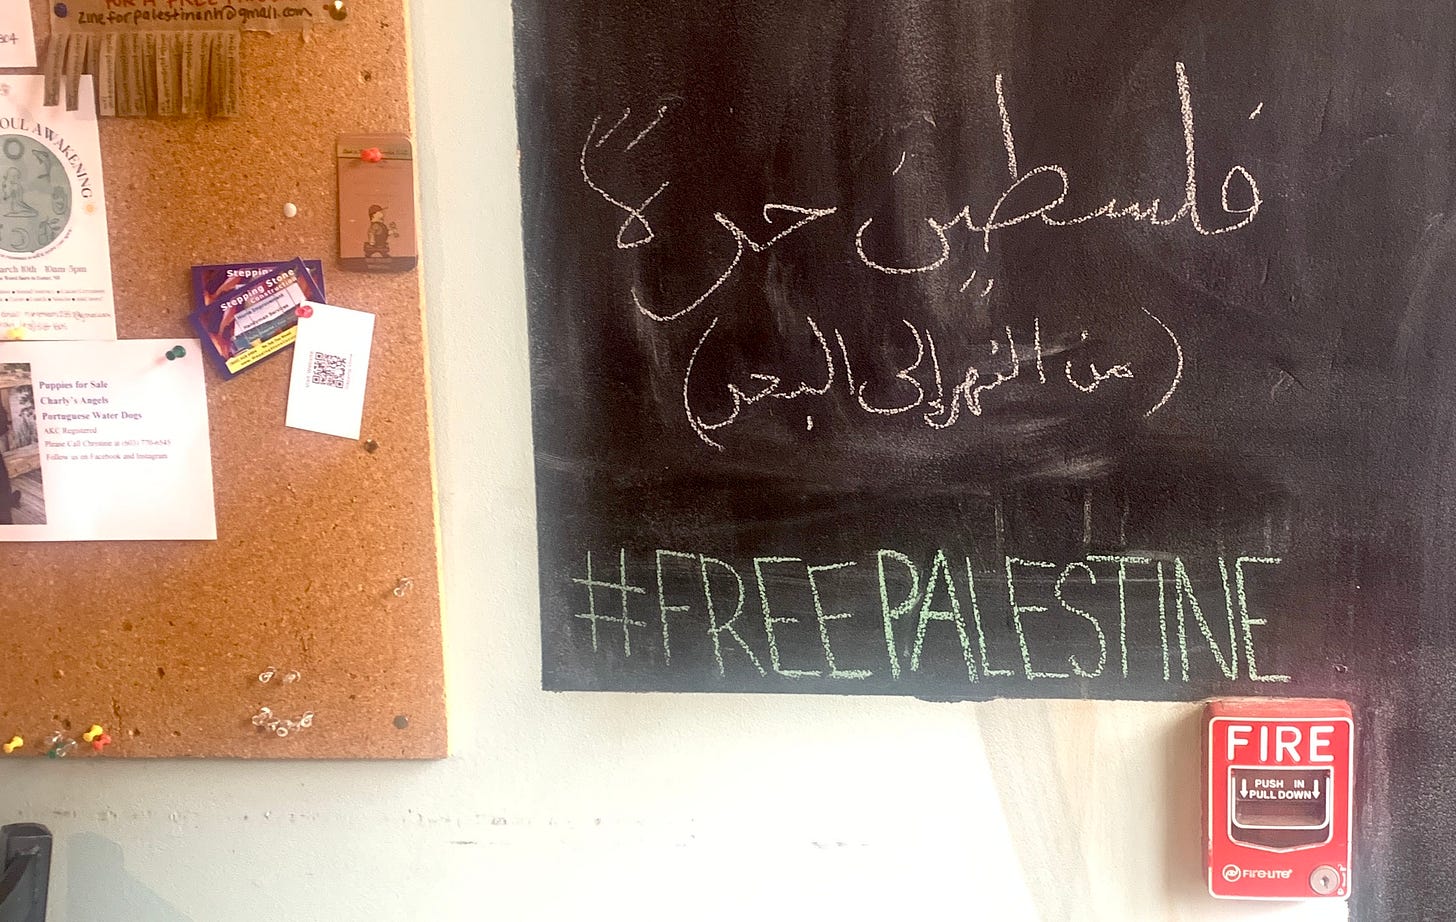 FOR A FREE
zineforpalestinenh@gmail.com
OUL AWAKENING
arch 10th 10am-5pm
Stepping
Stepping Stone
Construction
Puppies for Sale
Charly's Angels
Portuguese Water Dogs
AKC Registered
Please Call Christine at (603) 770-6545
Follow us on Facebook and Instagram
فلسطين حرة
(من النهر الى البحر)
#FREEPALESTINE
FIRE
PUSH IN
PULL DOWN
FIRE-LITE